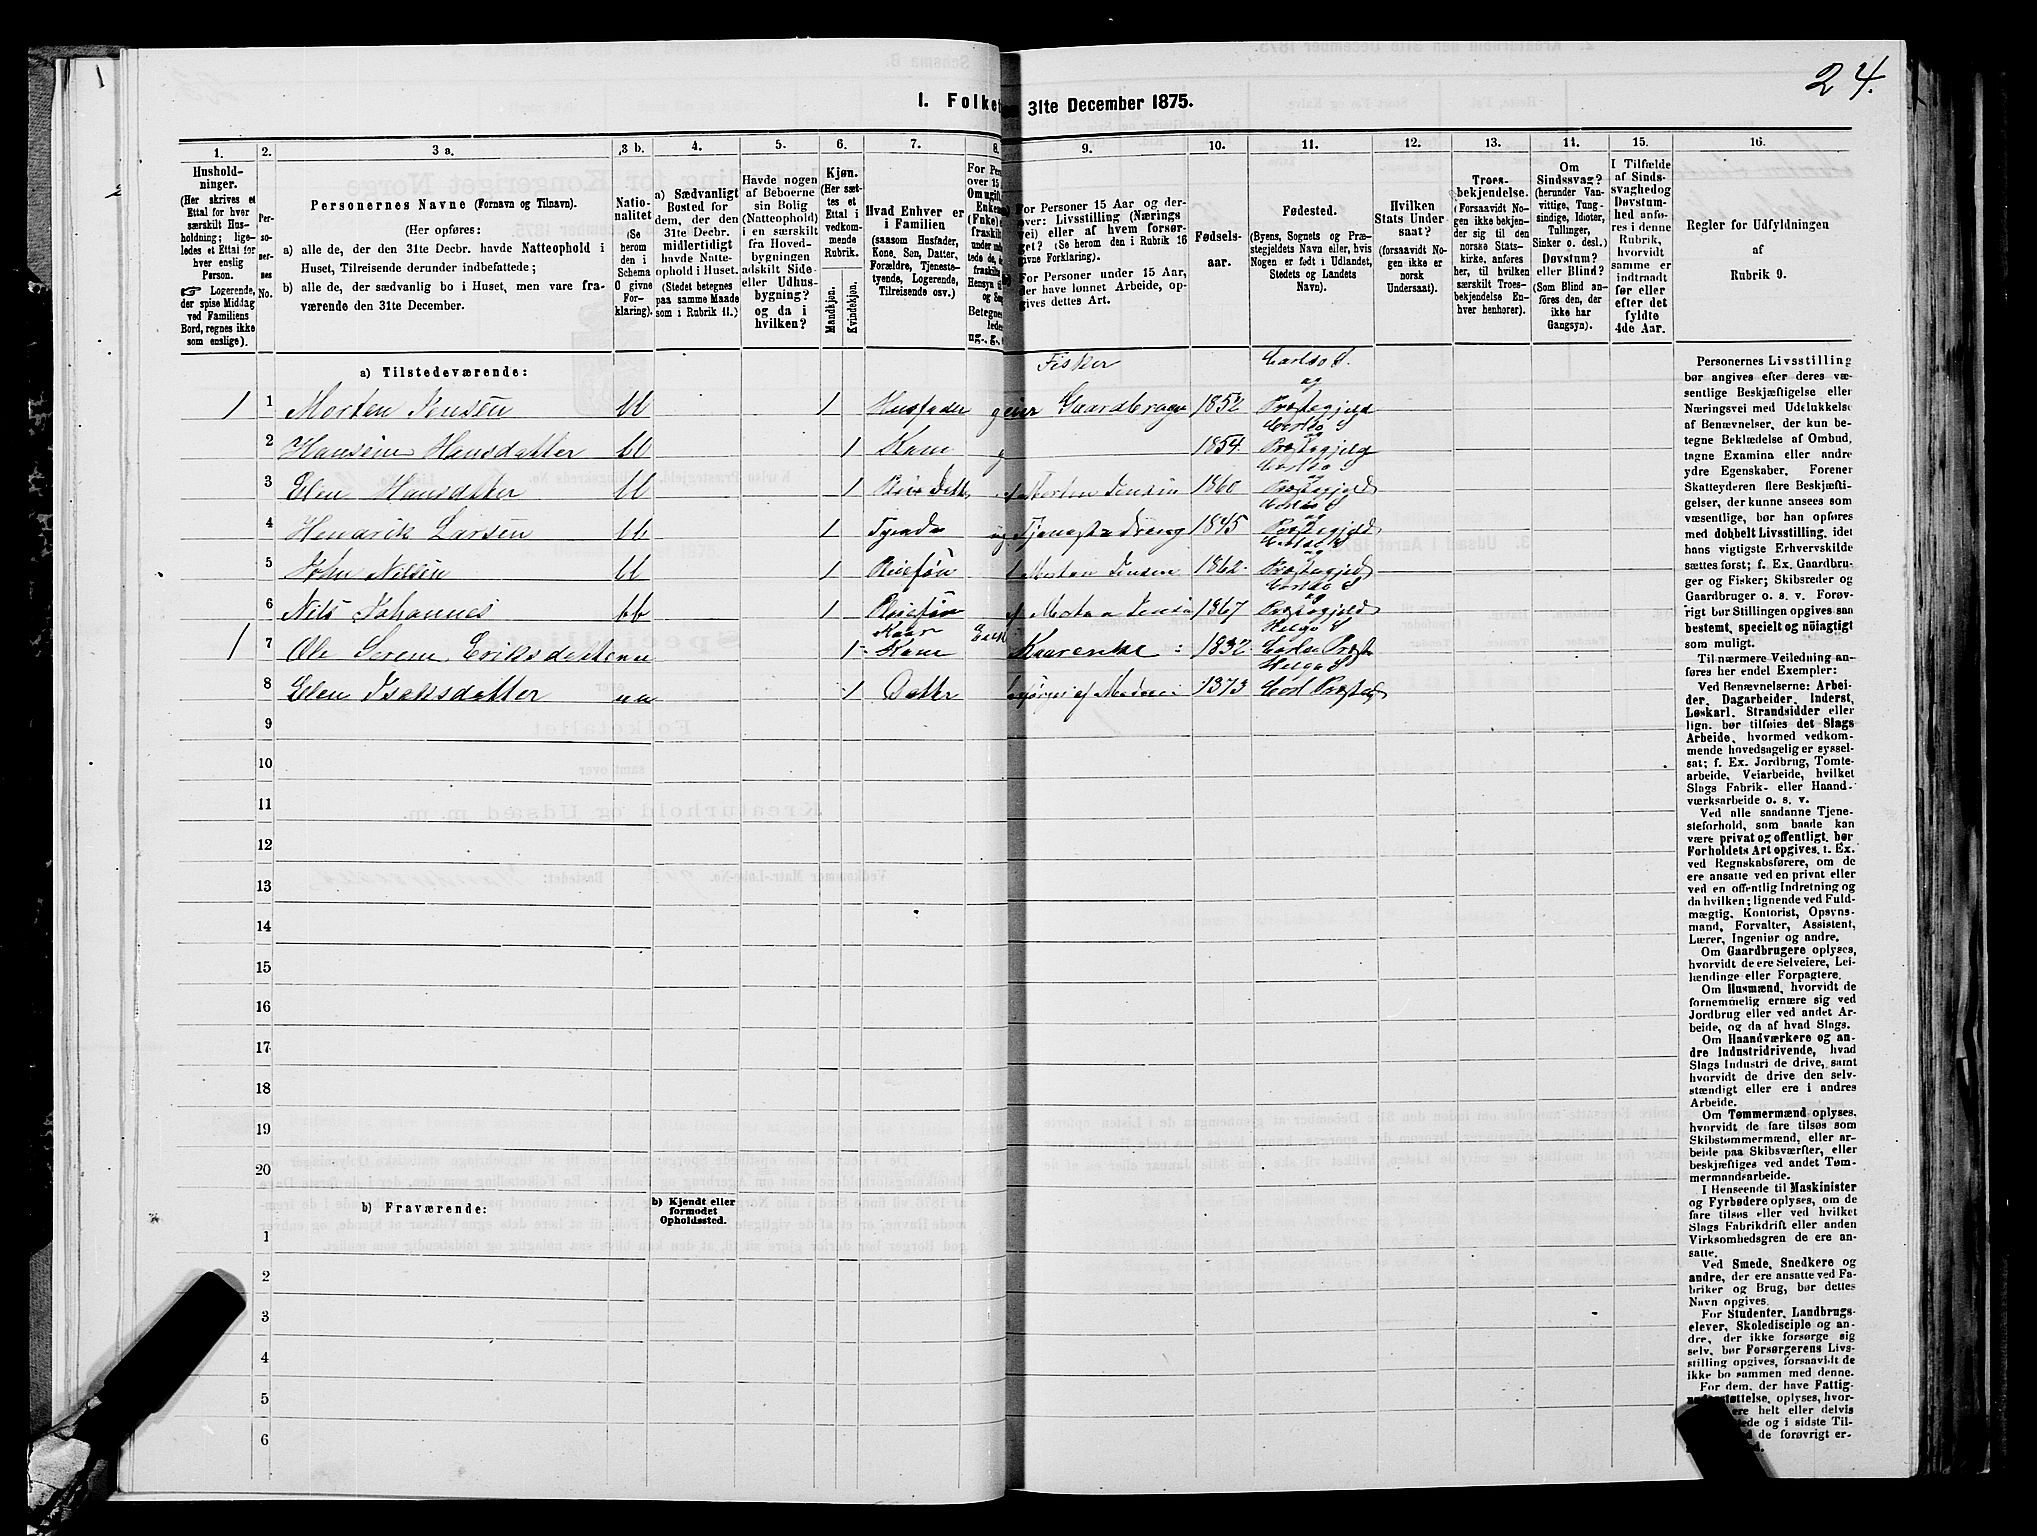 24.
I. Folket
31te December 1875.
1.
2.
3 a.
3 b.
4.
5.
6.
7.
8.
9.
10.
11.
12.
13.
14.
15.
16.
Hushold-
ninger.
(Her skrives et
Ettal for hver
særskilt Hus-
holdning; lige-
ledes et Ettal for
hver enslig
Person.
☞ Logerende,
der spise Middag
ved Familiens
Bord, regnes ikke
som enslige).
Per-
so-
ner-
nes
No.
Personernes Navne (Fornavn og Tilnavn).
(Her opføres:
a) alle de, der den 31te Decbr. havde Natteophold i
Huset, Tilreisende derunder indbefattede;
b) alle de, der sædvanlig bo i Huset, men vare fra-
værende den 31te December.
Natio-
nalitet
(Se
herom
den i
Schema
O givne
For-
klaring).
a) Sædvanligt
Bosted for
dem, der den
31te Decbr.
midlertidigt
havde Natte-
ophold i Huset.
(Stedet betegnes
paa samme Maade
som i Rubrik 11.)
Havde nogen
af Beboerne
sin Bolig
(Natteophold)
i en særskilt
fra Hoved-
bygningen
adskilt Side-
eller Udhus-
bygning?
og da i
hvilken?
Kjøn.
(Her sæt-
tes et
Ettal i
vedkom-
mende
Rubrik.
Mandkjøn.
Kvindekjøn.
Hvad Enhver er
i Familien
(saasom Husfader,
Kone, Søn, Datter,
Forældre, Tjeneste-
tyende, Logerende,
Tilreisende osv.)
For Personer 15 Aar og der-
over: Livsstilling (Nærings
vei) eller af hvem forsør-
get? (Se herom den i Rubrik 16
givne Forklaring).
For Personer under 15 Aar,
der have lønnet Arbeide, op-
gives dettes Art.
Fødsels-
aar.
Fødested.
(Byens, Sognets og Præ-
stegjeldets Navn eller, hvis
Nogen er født i Udlandet,
Stedets og Landets
Navn).
Hvilken
Stats Under-
saat?
(forsaavidt No-
gen ikke er
norsk
Undersaat).
Troes-
bekjendelse.
(Forsaavidt No-
gen ikke bekjen-
der sig til den
norske Stats-
kirke, anføres
her, til hvilken
særskilt Troes-
bekjendelse En-
hver henhører).
Om
Sindssvag?
(herunder Van-
vittige, Tung-
sindige, Idioter,
Tullinger,
Sinker o. desl.)
Døvstum?
eller Blind?
(Som Blind an-
føres den, der
ikke har
Gangsyn).
I Tilfælde
af Sinds-
svaghed og
Døvstum-
hed anfø-
res i denne
Rubrik,
hvorvidt
samme er
indtraadt
før eller
efter det
fyldte
4de Aar.
Regler for Udfyldningen
af
Rubrik 9.
a) Tilstedeværende:
Fisker Carlsø S.
1 1 Morten Jensen bb 1 Husfader g Gaardbruger 1852 og Præstegjeld
2 Hansine Hansdatter bb 1 Kone g 1854. Carlsø S og Præstegjeld
3 Elen Hansdatter bb 1 Morten Jensen 1860 Carlsø S og Præstegjeld
4 Henrik Larsen bb 1 Tyende ug Tjenestedreng 1845 Carlsø S og Præstegjeld
5 John Nilsen bb 1 Pleiesøn af Morten Jensen 1862. Carlsø S og Præstegjeld
6 Nils Johannes bb 1 Pleiesøn af Morten Jensen 1867 Carlsø S og Præstegjeld
1 7 Ole Serene Eriksdatter nn 1 Kone Enke 1832 Helgø S Carlsø Præst
8 Elen Isaksdatter nn 1 Datter af Moderen 1873 Helgø S Carl Præsteg
9
10
11
12
13
14
15
16
17
18
19
20
b) Fraværende:
b) Kjendt eller
formodet
Opholdssted.
1
2
3
4
5
6
Personernes Livsstilling
bør angives efter deres væ-
sentlige Beskjæftigelse eller
Næringsvei med Udelukkelse
af Benævnelser, der kun be-
tegne Beklædelse af Ombud,
tagne Examina eller andre
ydre Egenskaber. Forener
Skatteyderen flere Beskjæfti-
gelser, der kunne ansees som
væsentlige, bør han opføres
med dobbelt Livsstilling, idet
hans vigtigste Erhvervskilde
sættes først; f. Ex. Gaardbru-
ger og Fisker; Skibsreder og
Gaardbruger o. s. v. Forøv-
rigt bør Stillingen opgives saa
bestemt, specielt og nöiagtigt
som muligt.
Til nærmere Veiledning an-
føres her endel Exempler:
Ved Benævnelserne: Arbei-
der, Dagarbeider, Inderst,
Løskarl, Strandsidder eller
lign. bør tilføies det Slags
Arbeide, hvormed vedkom-
mende hovedsagelig er syssel-
sat; f. Ex. Jordbrug, Tomte-
arbeide, Veiarbeide, hvilket
Slags Fabrik- eller Haand-
værksarbeide o. s. v.
Ved alle saadanne Tjene-
steforhold, som baade kan
være privat og offentligt, bør
Forholdets Art opgives, f. Ex.
ved Regnskabsførere, om de
ere ansatte ved en privat eller
ved en offentlig Indretning og
da hvilken; lignende ved Fuld-
mægtig, Kontorist, Opsyns-
mand, Forvalter, Assistent,
Lærer, Ingeniør og andre.
Om Gaardbrugere oplyses,
hvorvidt de ere Selveiere, Lei-
lændinge eller Forpagtere.
Om Husmænd, hvorvidt de
fornemmelig ernære sig ved
Jordbrug eller ved andet Ar-
beide, og da af hvad Slags.
Om Haandværkere og an-
dre Industridrivende, hvad
Slags Industri de drive, samt
hvorvidt de drive den selv-
stændigt eller ere i andres
Arbeide.
Om Tømmermænd oplyses,
hvorvidt de fare tilsøs som
Skibstømmermænd, eller ar-
beide paa Skibsværfter, eller
beskjæftiges ved andet Tøm-
mermandsarbeide.
I Henseende til Maskinister
og Fyrbødere oplyses, om de
fare tilsøs eller ved hvilket
Slags Fabrikdrift eller anden
Virksomhedsgren de ere an-
satte.
Ved Smede, Snedkere og
andre, der ere ansatte ved Fa-
briker og Brug, bør dettes
Navn opgives.
For Studenter, Landbrugs-
elever, Skoledisciple og an-
dre, der ikke forsørge sig
selv, bør Forsørgerens Livs-
stilling opgives, forsaavidt de
ikke bo sammen med denne.
For dem, der have Fattig-
understøttelse, oplyses, hvor-
helt eller delvis
og i sidste Til-
de forøvrigt er-